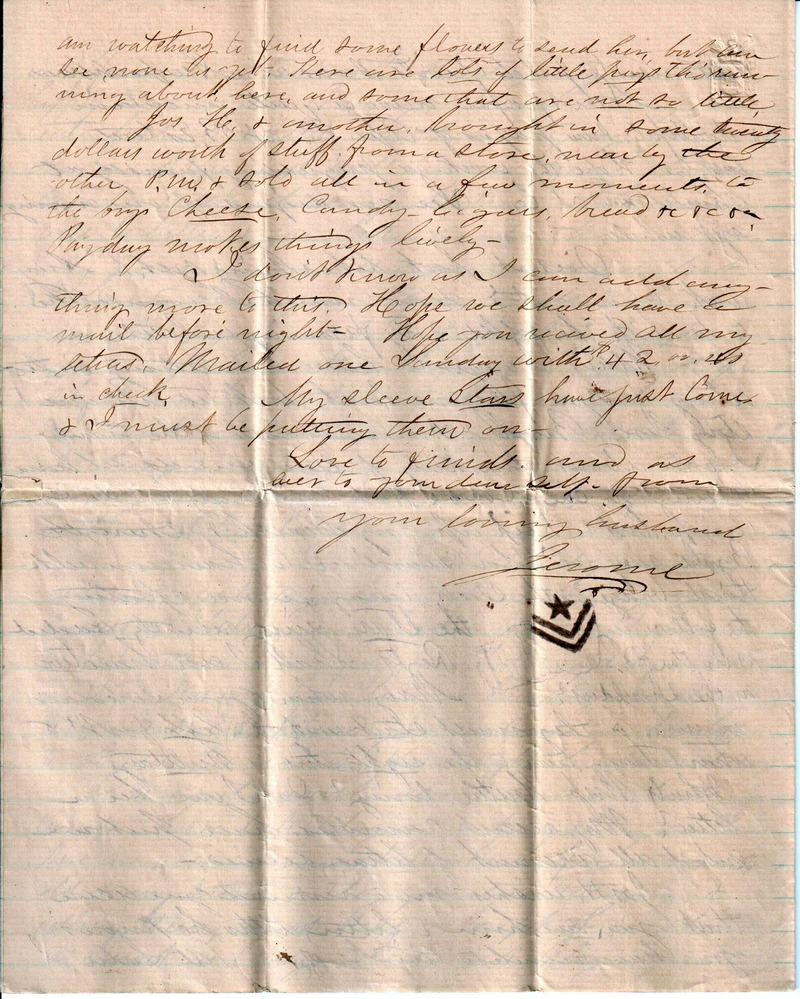 am watching to find some flowers to send her, but can
see none as yet. There are lots of little pigs tho run-
ning about here, and some that are not so little
Jos. H. & another, brought in some twenty
dollars worth of stuff from a store, near by the
other P.M. & sold all in a few moments. to
the boys Cheese, Candy - Liquors, bread &c &c &c
Payday makes things lively -
I don't know as I can add any-
thing more to this. Hope we shall have a
mail before night - Hope you recieved all my
letters. Mailed one Sunday with $42
in check. My sleeve Stars have just Come
& I must be putting them on -
Love to friends. and as
ever to your dear self. from
your loving husband
Jerome